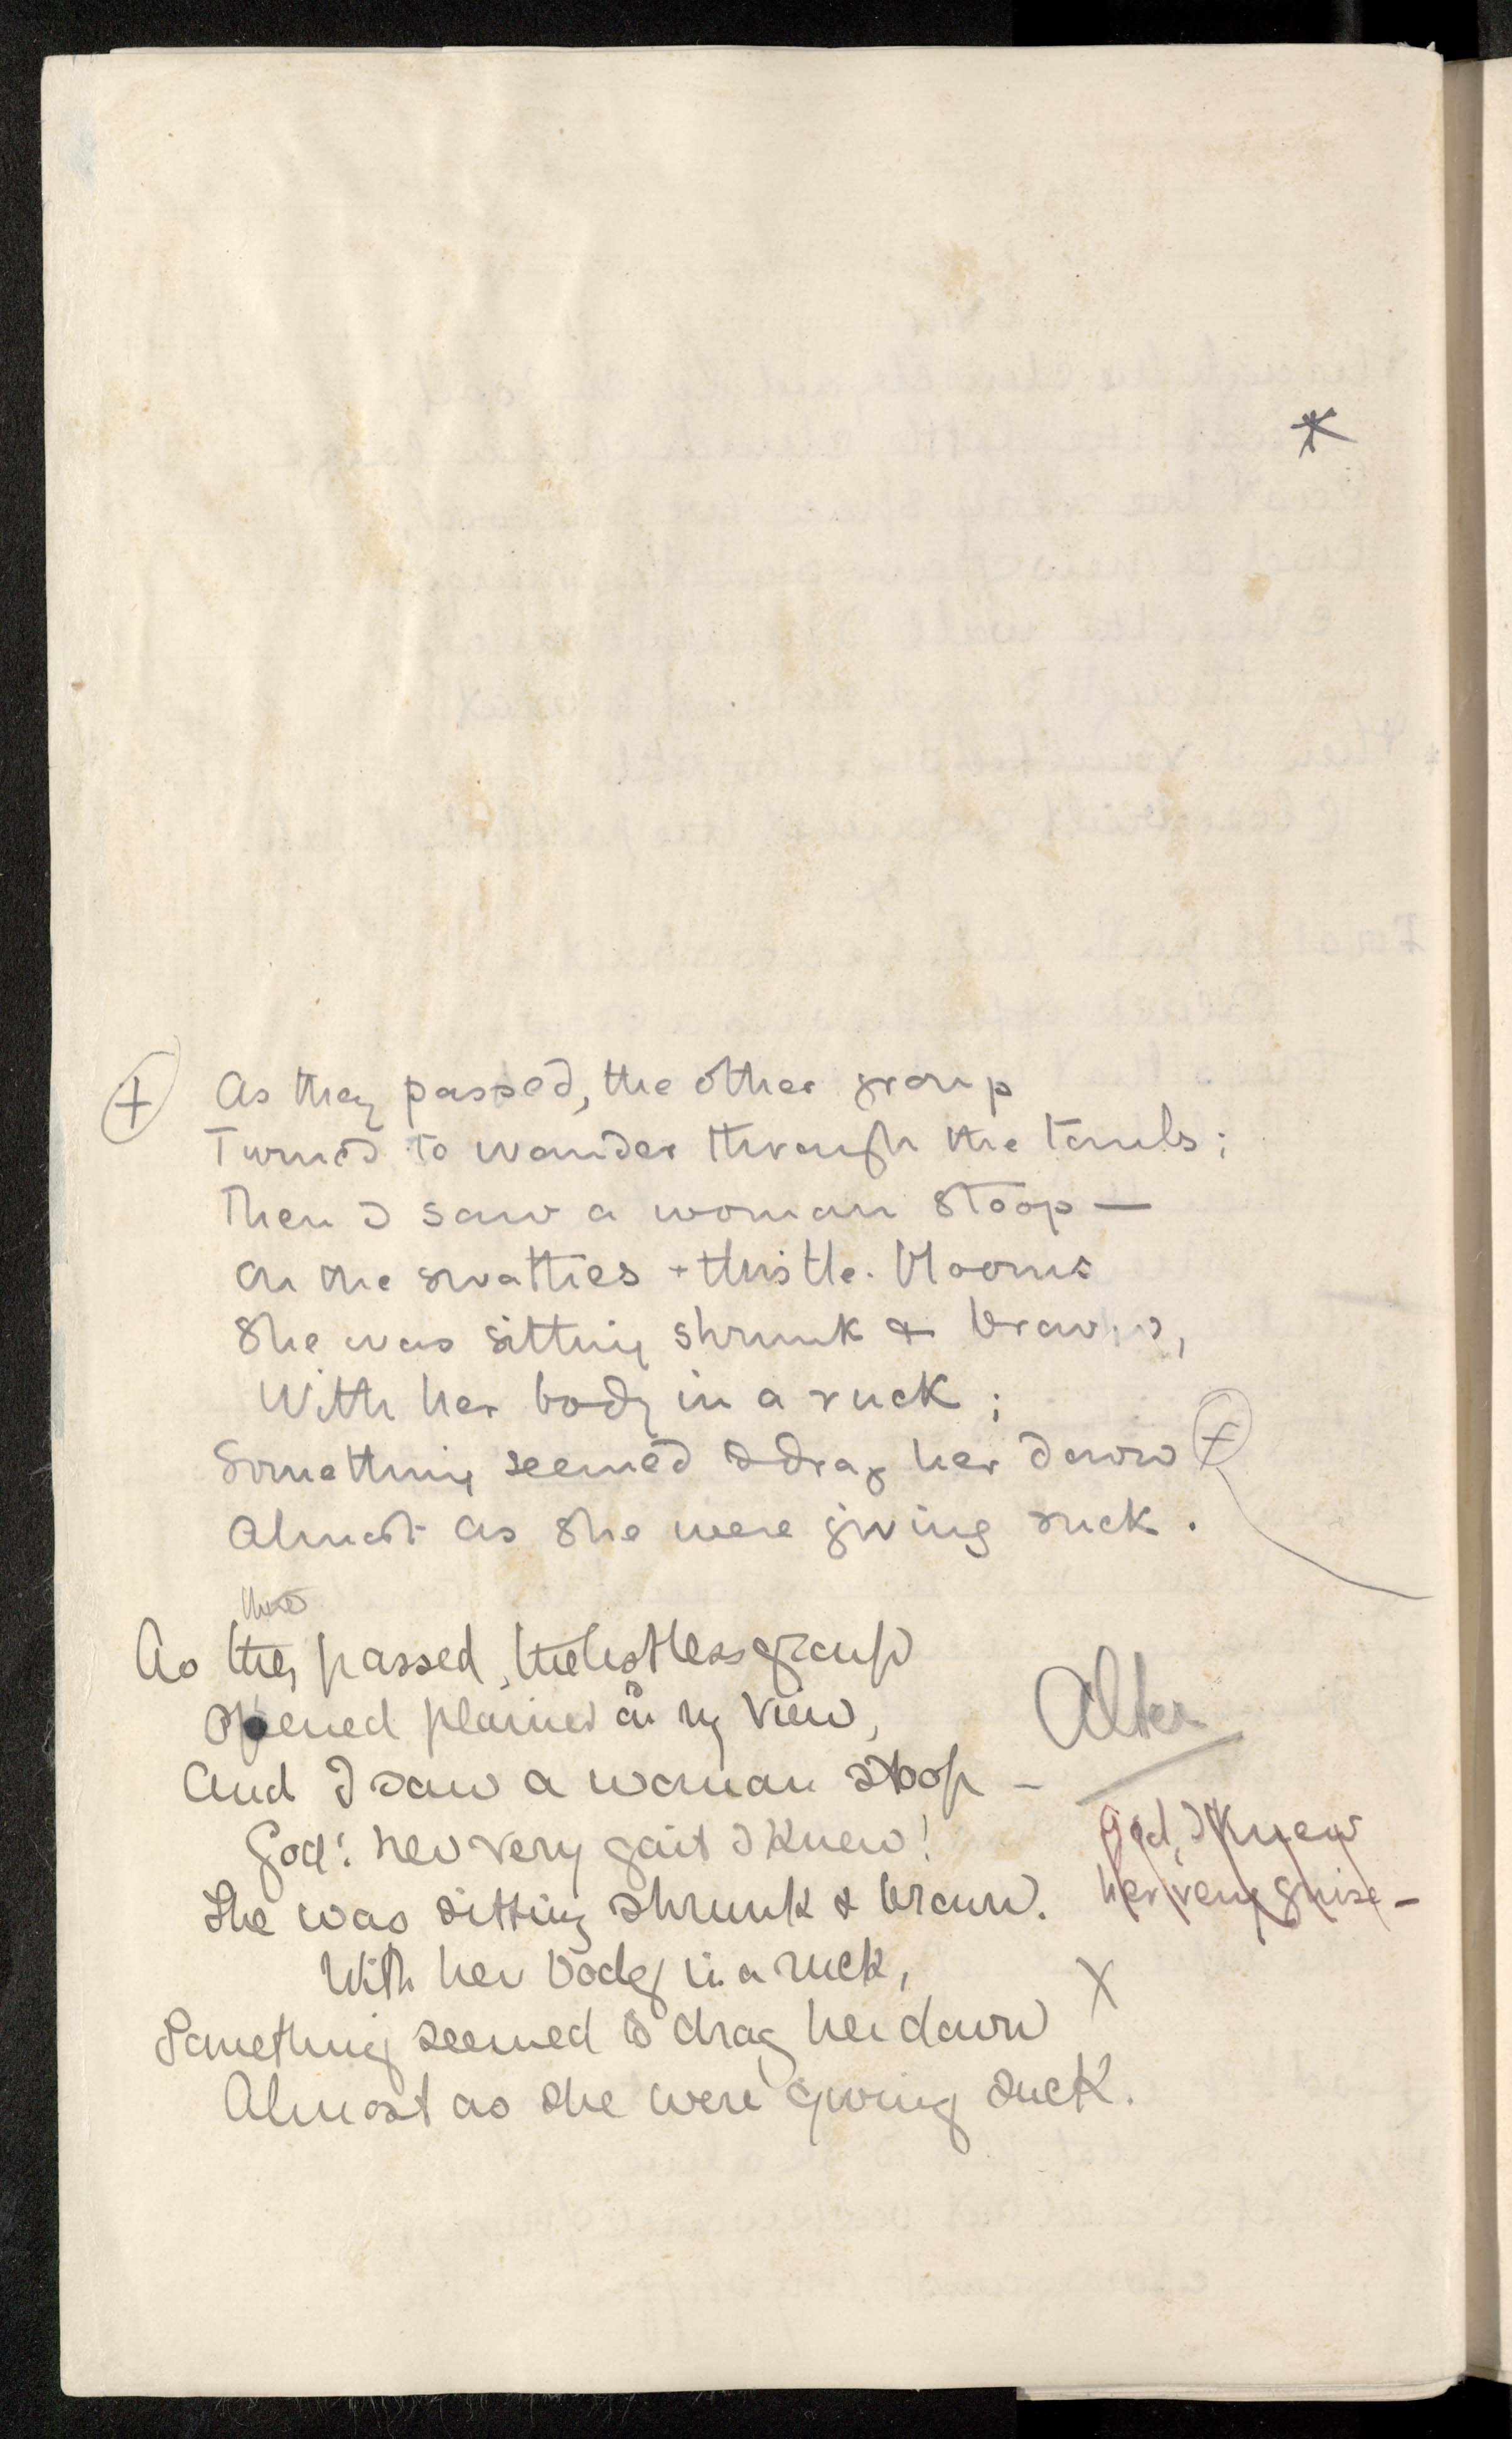 *
+ As they passed, the other group
Turned to wander through the tombs;
Then I saw a woman stoop —
On the swathes + thistle-blooms
She was sitting shrunk & brown,
With her body in a ruck;
Something seemed to drag her down +
Almost as she were giving suck.
these
As they passed, the listless group
Opened plainer on my view,
Alter
And I saw a woman stoop –
God! her very gait I knew!
God, I knew
her very guise –
She was sitting shrunk & brown.
With her body in a ruck,
X
Something seemed to drag her down
Almost as she were giving suck.